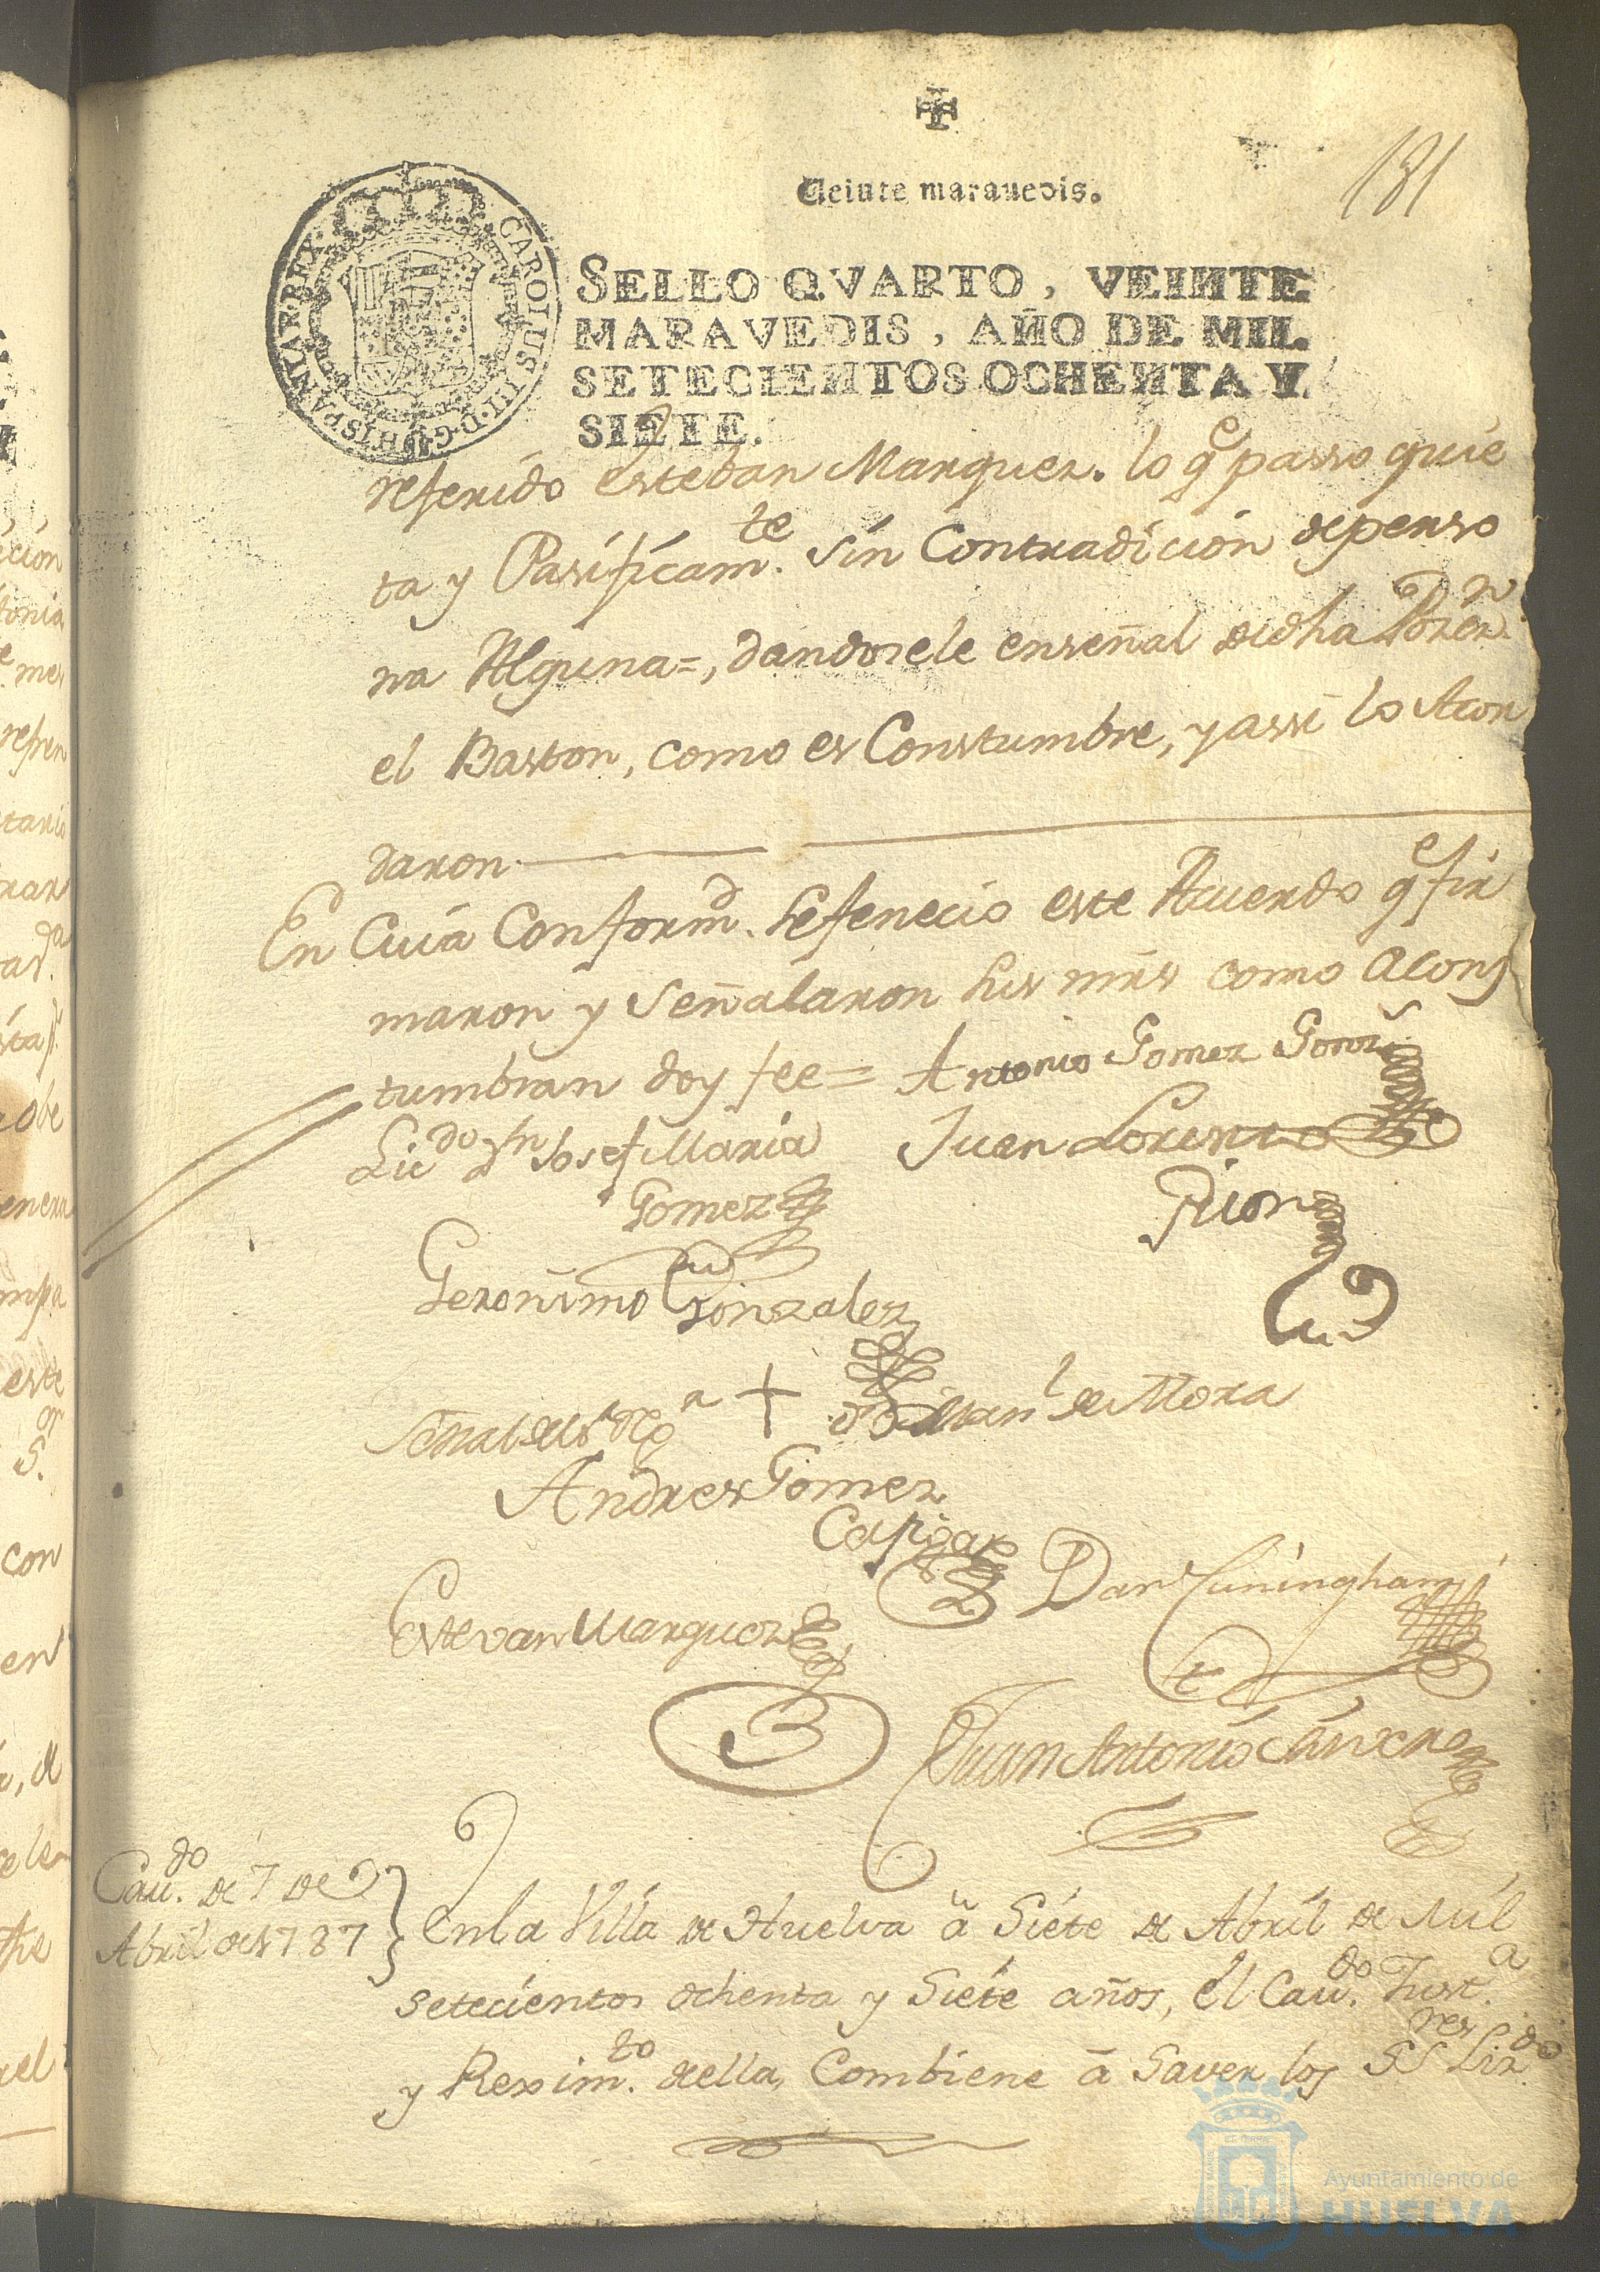 181
Veinte maravedis.
CAROLUS III D G HISPANIAR REX
SELLO QVARTO, VEINTE
MARAVEDIS, AÑO DE MIL
SETECIENTOS OCHENTA Y
SIETE.
referido Esteban Marquez. lo q.e passo quie
ta y Pasificam.te sin Contradicion de perso
na Alguna=, dandosele en señal de dha Poses.n
el Baston, como es Constumbre, y assi lo Acor
daron.
En Cuia Conform.d se fenecio este Acuerdo q.e fir
maron y señalaron sus mrs como Acons
tumbran doy fee=
Antonio Gomez
Lic.do Dn Josef Maria
Gomez
Juan Lorenzo
Geronimo Gonzalez
Señal del
+
Man.l de Mora
Andres Gomez
Estevan Marquez
Cuningham
Juan Antonio
Cau.do de 7 de
Abril de 1787
En la Villa de Huelva à Siete de Abril de Mil
setecientos ochenta y Siete años, el Cau.do Just.a
y Reximt.o della, Combiene à Saver los SS.res Liz.do
Ayuntamiento de
HUELVA